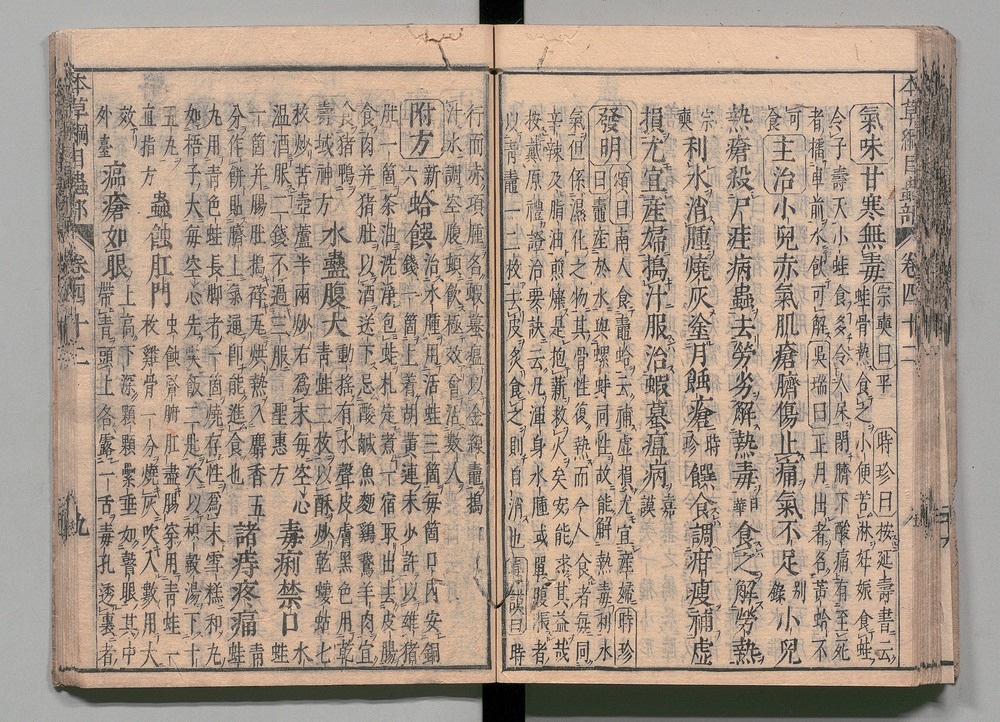 本草綱目蟲部 卷四十二
氣味甘寒無毒宗奭曰平 時珍曰按延壽書云
蛙骨熱食之小便苦淋妊娠食蛙
令子壽夭小蛙食多令人尿閉臍下酸痛有至死
者擂車前水飲可解吳瑞曰正月出者名黃蛤不
可食主治小兒赤氣肌瘡臍傷止痛氣不足别錄小兒
熱瘡殺尸疰病蟲去勞劣解熱毒日華食之解勞熱
宗奭利水消腫燒灰塗月蝕瘡時珍饌食調疳瘦補虛
損尤宜産婦搗汁服治蝦蟇瘟病嘉謨
發明頌曰南人食鼃蛤云補虛損尤宜産婦時珍
曰鼃産於水與螺蚌同性故能解熱毒利水
氣但係濕化之物其骨性復熱而今人食者每同
辛辣及脂油煎煿是抱薪救火矣安能求其益哉
按戴原禮證治要訣云凡渾身水腫或單腹脹者
以靑鼃一二枚去皮炙食之則自消也嘉謨曰時
行而赤項腫各蝦蟇瘟以金線鼃搗
汁水調空腹頓飲極效曾活數人
附方新六蛤饌治水腫用活蛙三箇每箇口内安銅
錢一箇上着胡黃連末少許以雄猪
肚一箇茶油洗淨包蛙扎定煮一宿取出去皮腸
食肉并猪肚以酒送下忌酸鹹魚麵鷄鵞羊肉宜
食猪鴨壽域神方水蠱腹大動搖有水聲皮膚黑色用乾
靑蛙二枚以酥炒乾螻蛄七
枚炒苦壺蘆半兩炒右爲末每空心
溫酒服二錢不過三服聖惠方毒痢禁口水蛙
一箇并腸肚搗碎瓦烘熱入麝香五
分作餅貼臍上氣通即能進食也諸痔疼痛靑蛙
丸用靑色蛙長脚者一箇燒存性爲末雪糕和丸
如梧子大每空心先喫飯二匙次以枳殼湯下十
五丸直指方蟲蝕肛門虫蝕腎腑肛盡腸穿用靑蛙一
枚雞骨一分燒灰吹入數用大
效外臺癌瘡如眼上高下深顆顆纍垂如瞽眼其中
帶靑頭上各露一舌毒孔透裏者
本草綱目蟲部 卷四十二 九